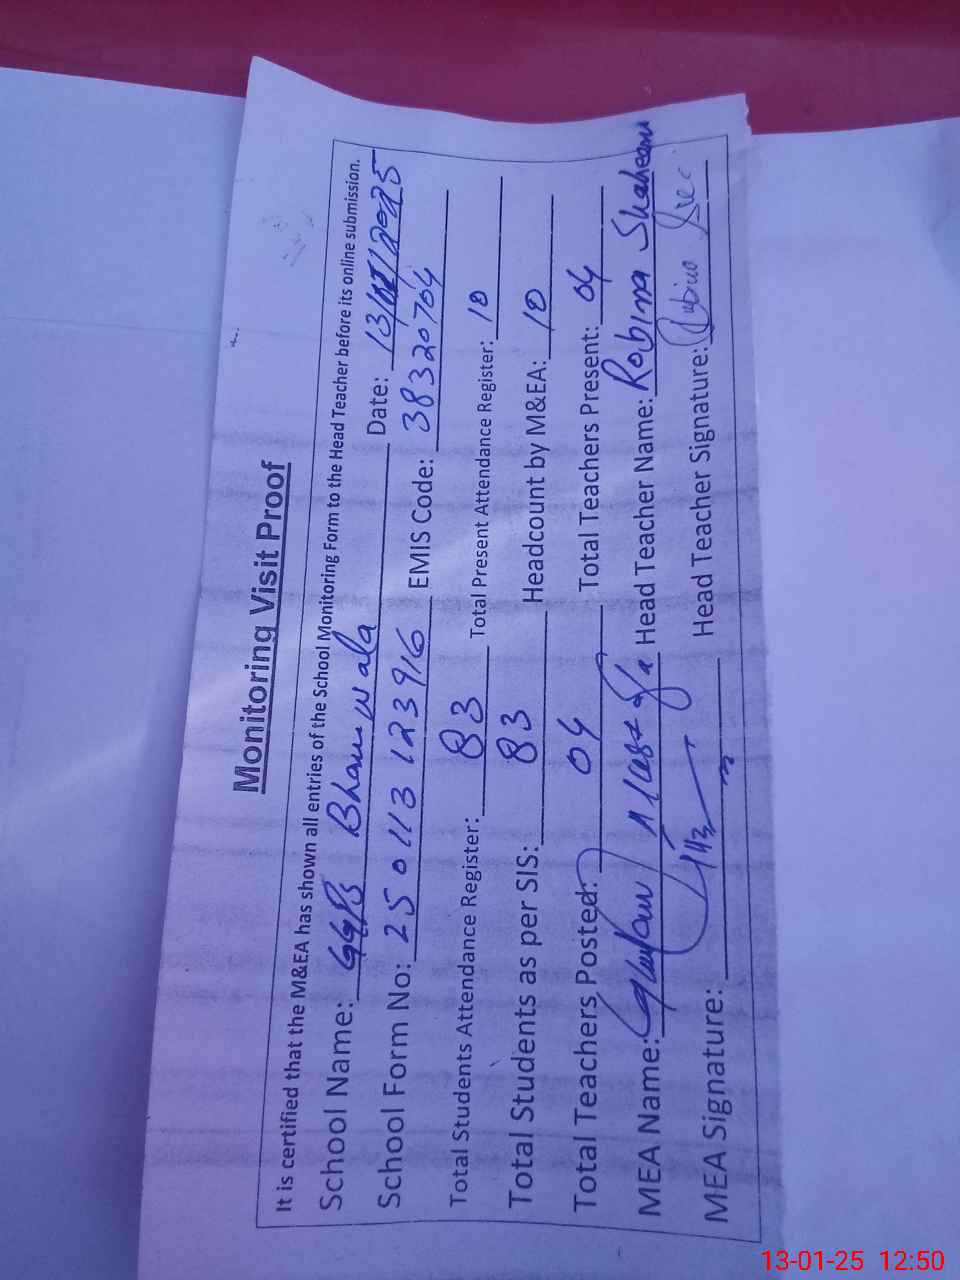 Monitoring Visit Proof
It is certified that the M&EA has shown all entries of the School Monitoring Form to the Head Teacher before its online submission.
School Name: GGPS Bhawwala Date: 13/01/2025
School Form No: 250113123916 EMIS Code: 38320704
Total Students Attendance Register: 83 Total Present Attendance Register: 10
Total Students as per SIS: 83 Headcount by M&EA: 10
Total Teachers Posted: 04 Total Teachers Present: 04
MEA Name: Head Teacher Name: Robina Shaheen
MEA Signature: Head Teacher Signature:
13-01-25 12:50